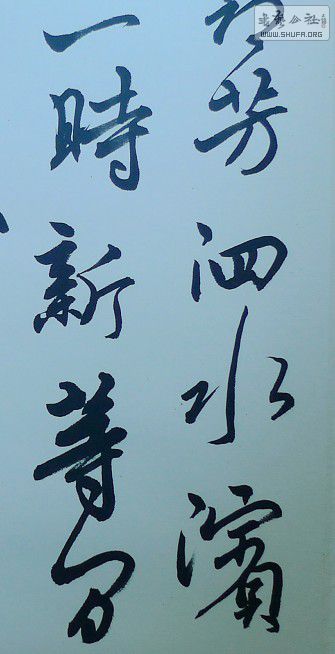 芳泗水濱
一時新等間
书法公社
WWW.SHUFA.ORG